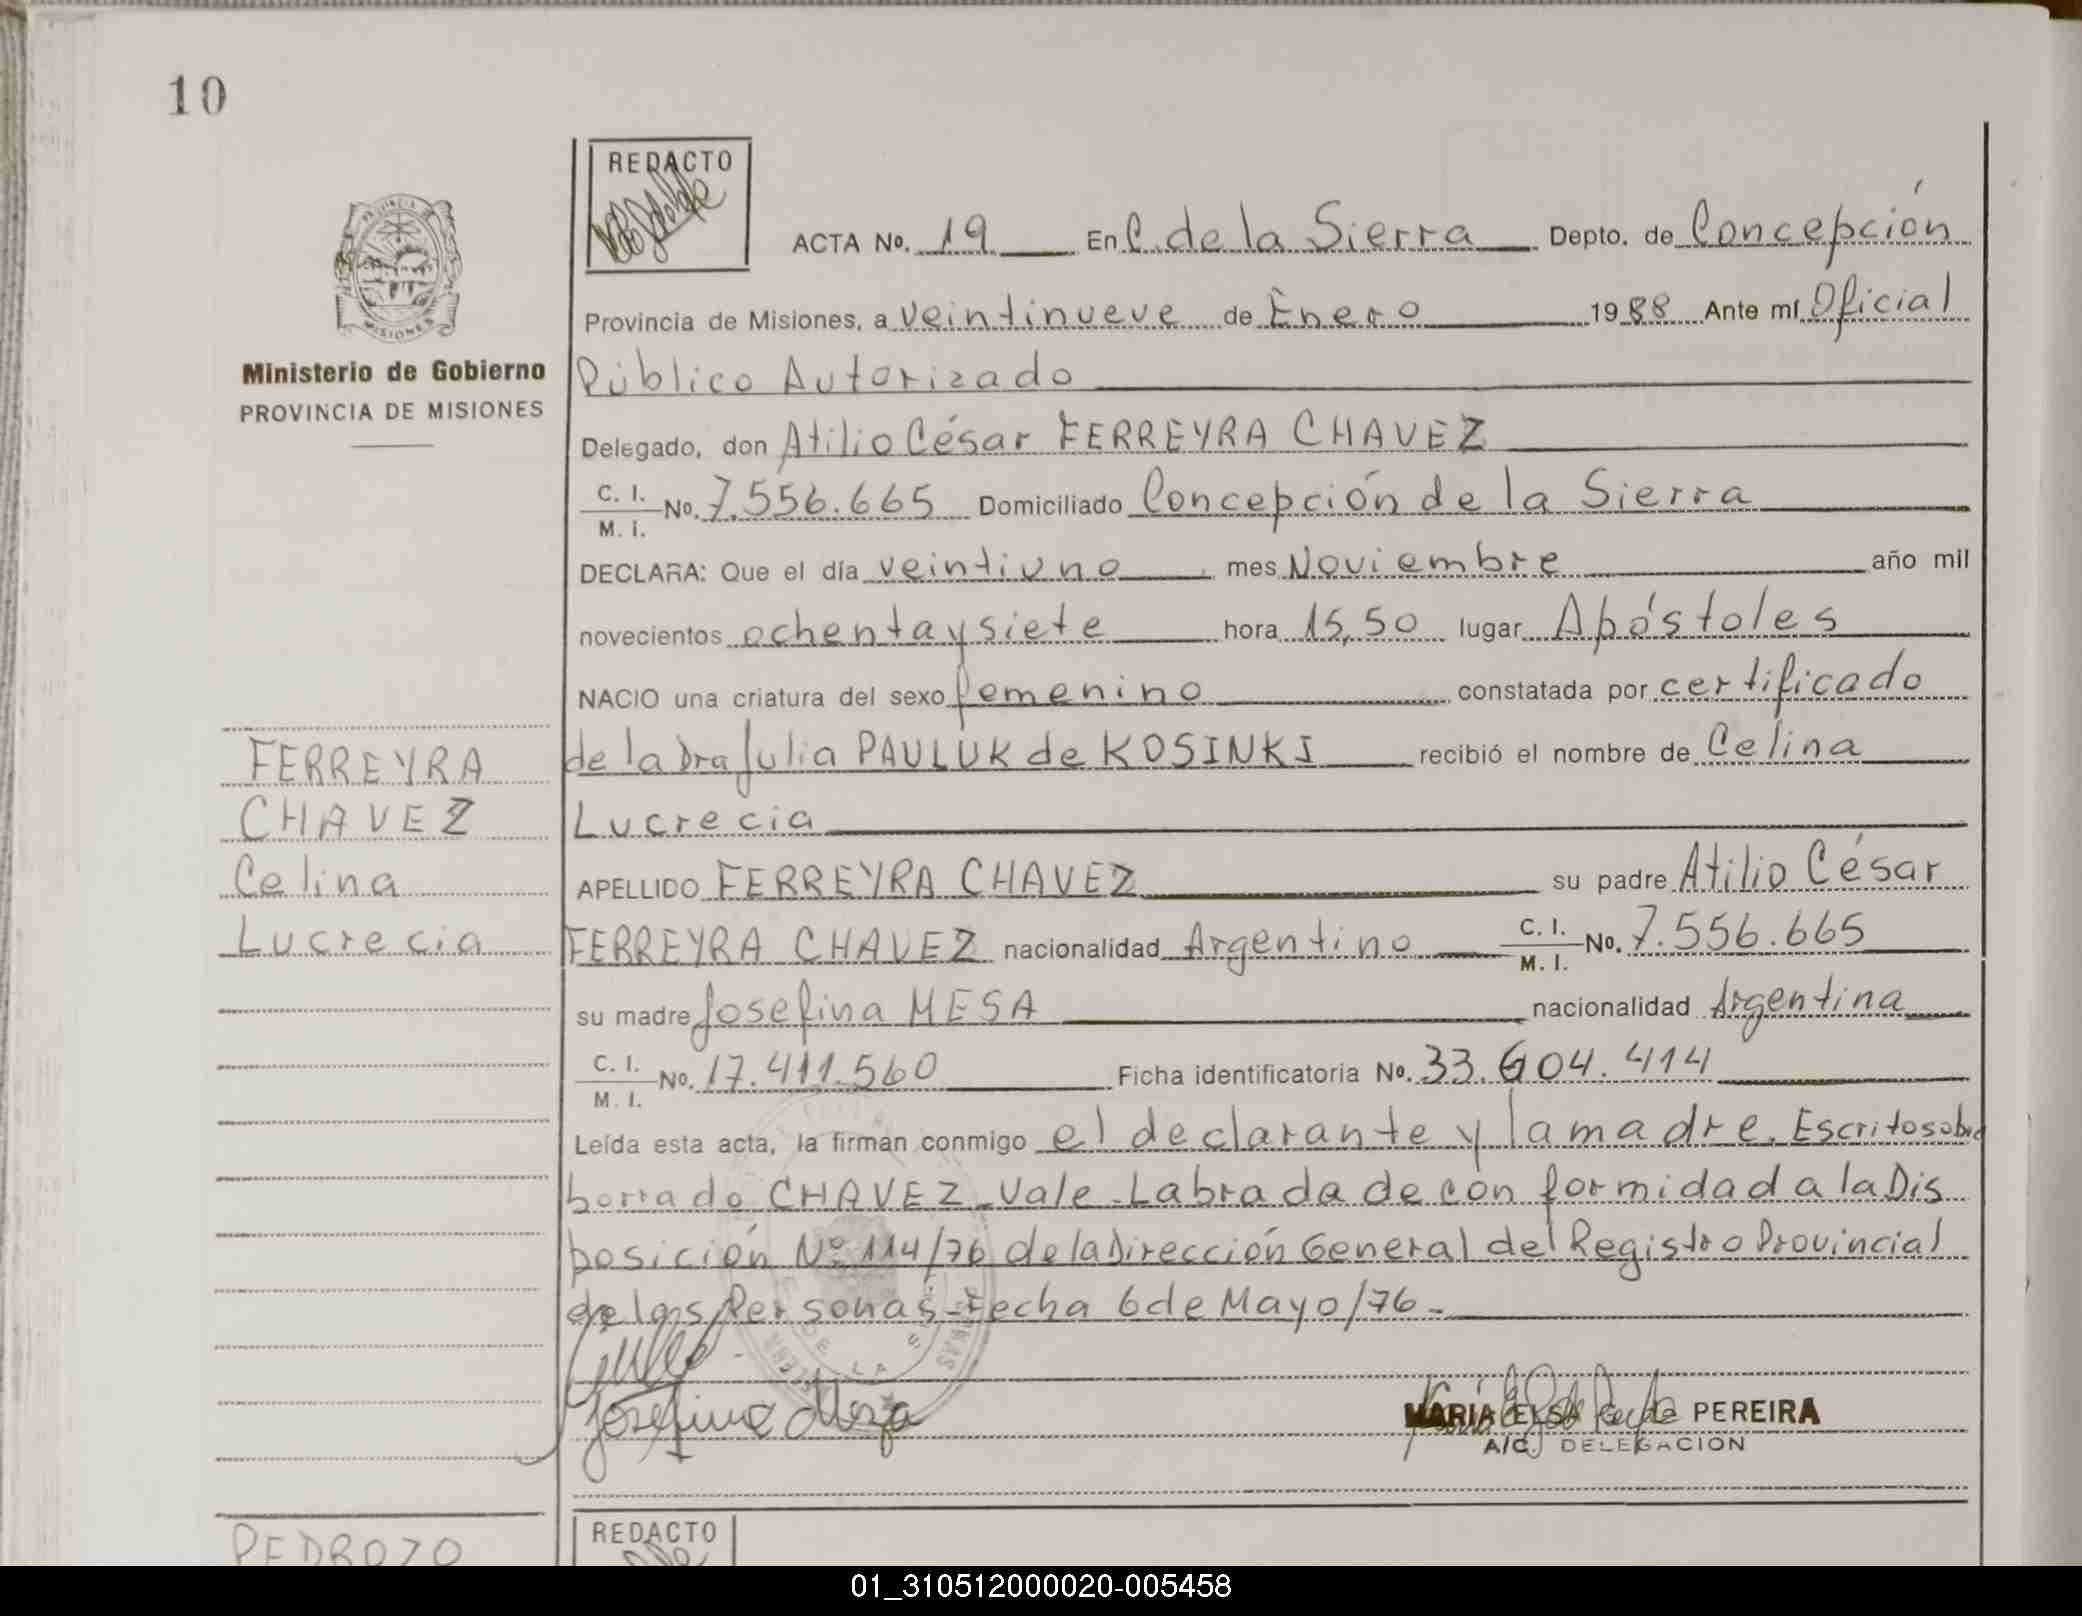 10
REDACTO
PROVINCIA DE
MISIONES
Ministerio de Gobierno
PROVINCIA DE MISIONES
ACTA No. 19 En C. de la Sierra Depto. de Concepción
Provincia de Misiones, a veintinueve de Enero 1988 Ante mí Oficial
Público Autorizado
Delegado, don Atilio César FERREYRA CHAVEZ
C. I. / M. I. No. 7.556.665 Domiciliado Concepción de la Sierra
DECLARA: Que el día veintiuno mes Noviembre año mil
novecientos ochenta y siete hora 15,50 lugar Apóstoles
NACIO una criatura del sexo femenino constatada por certificado
de la Dra Julia PAULUK de KOSINKI recibió el nombre de Celina
Lucrecia
APELLIDO FERREYRA CHAVEZ su padre Atilio César
FERREYRA CHAVEZ nacionalidad Argentino C. I. / M. I. No. 7.556.665
su madre Josefina MESA nacionalidad Argentina
C. I. / M. I. No. 17.411.560 Ficha identificatoria No. 33.604.414
Leída esta acta, la firman conmigo el declarante y la madre. Escrito sobre
borrado CHAVEZ - Vale - Labrada de conformidad a la Dis
posición Nº 114/76 de la Dirección General del Registro Provincial
de las Personas - Fecha 6 de Mayo/76 -
Josefina Meza
MARIA ELSA G. de PEREIRA
A/C DELEGACION
FERREYRA
CHAVEZ
Celina
Lucrecia
PEDROZO
REDACTO
01_310512000020-005458